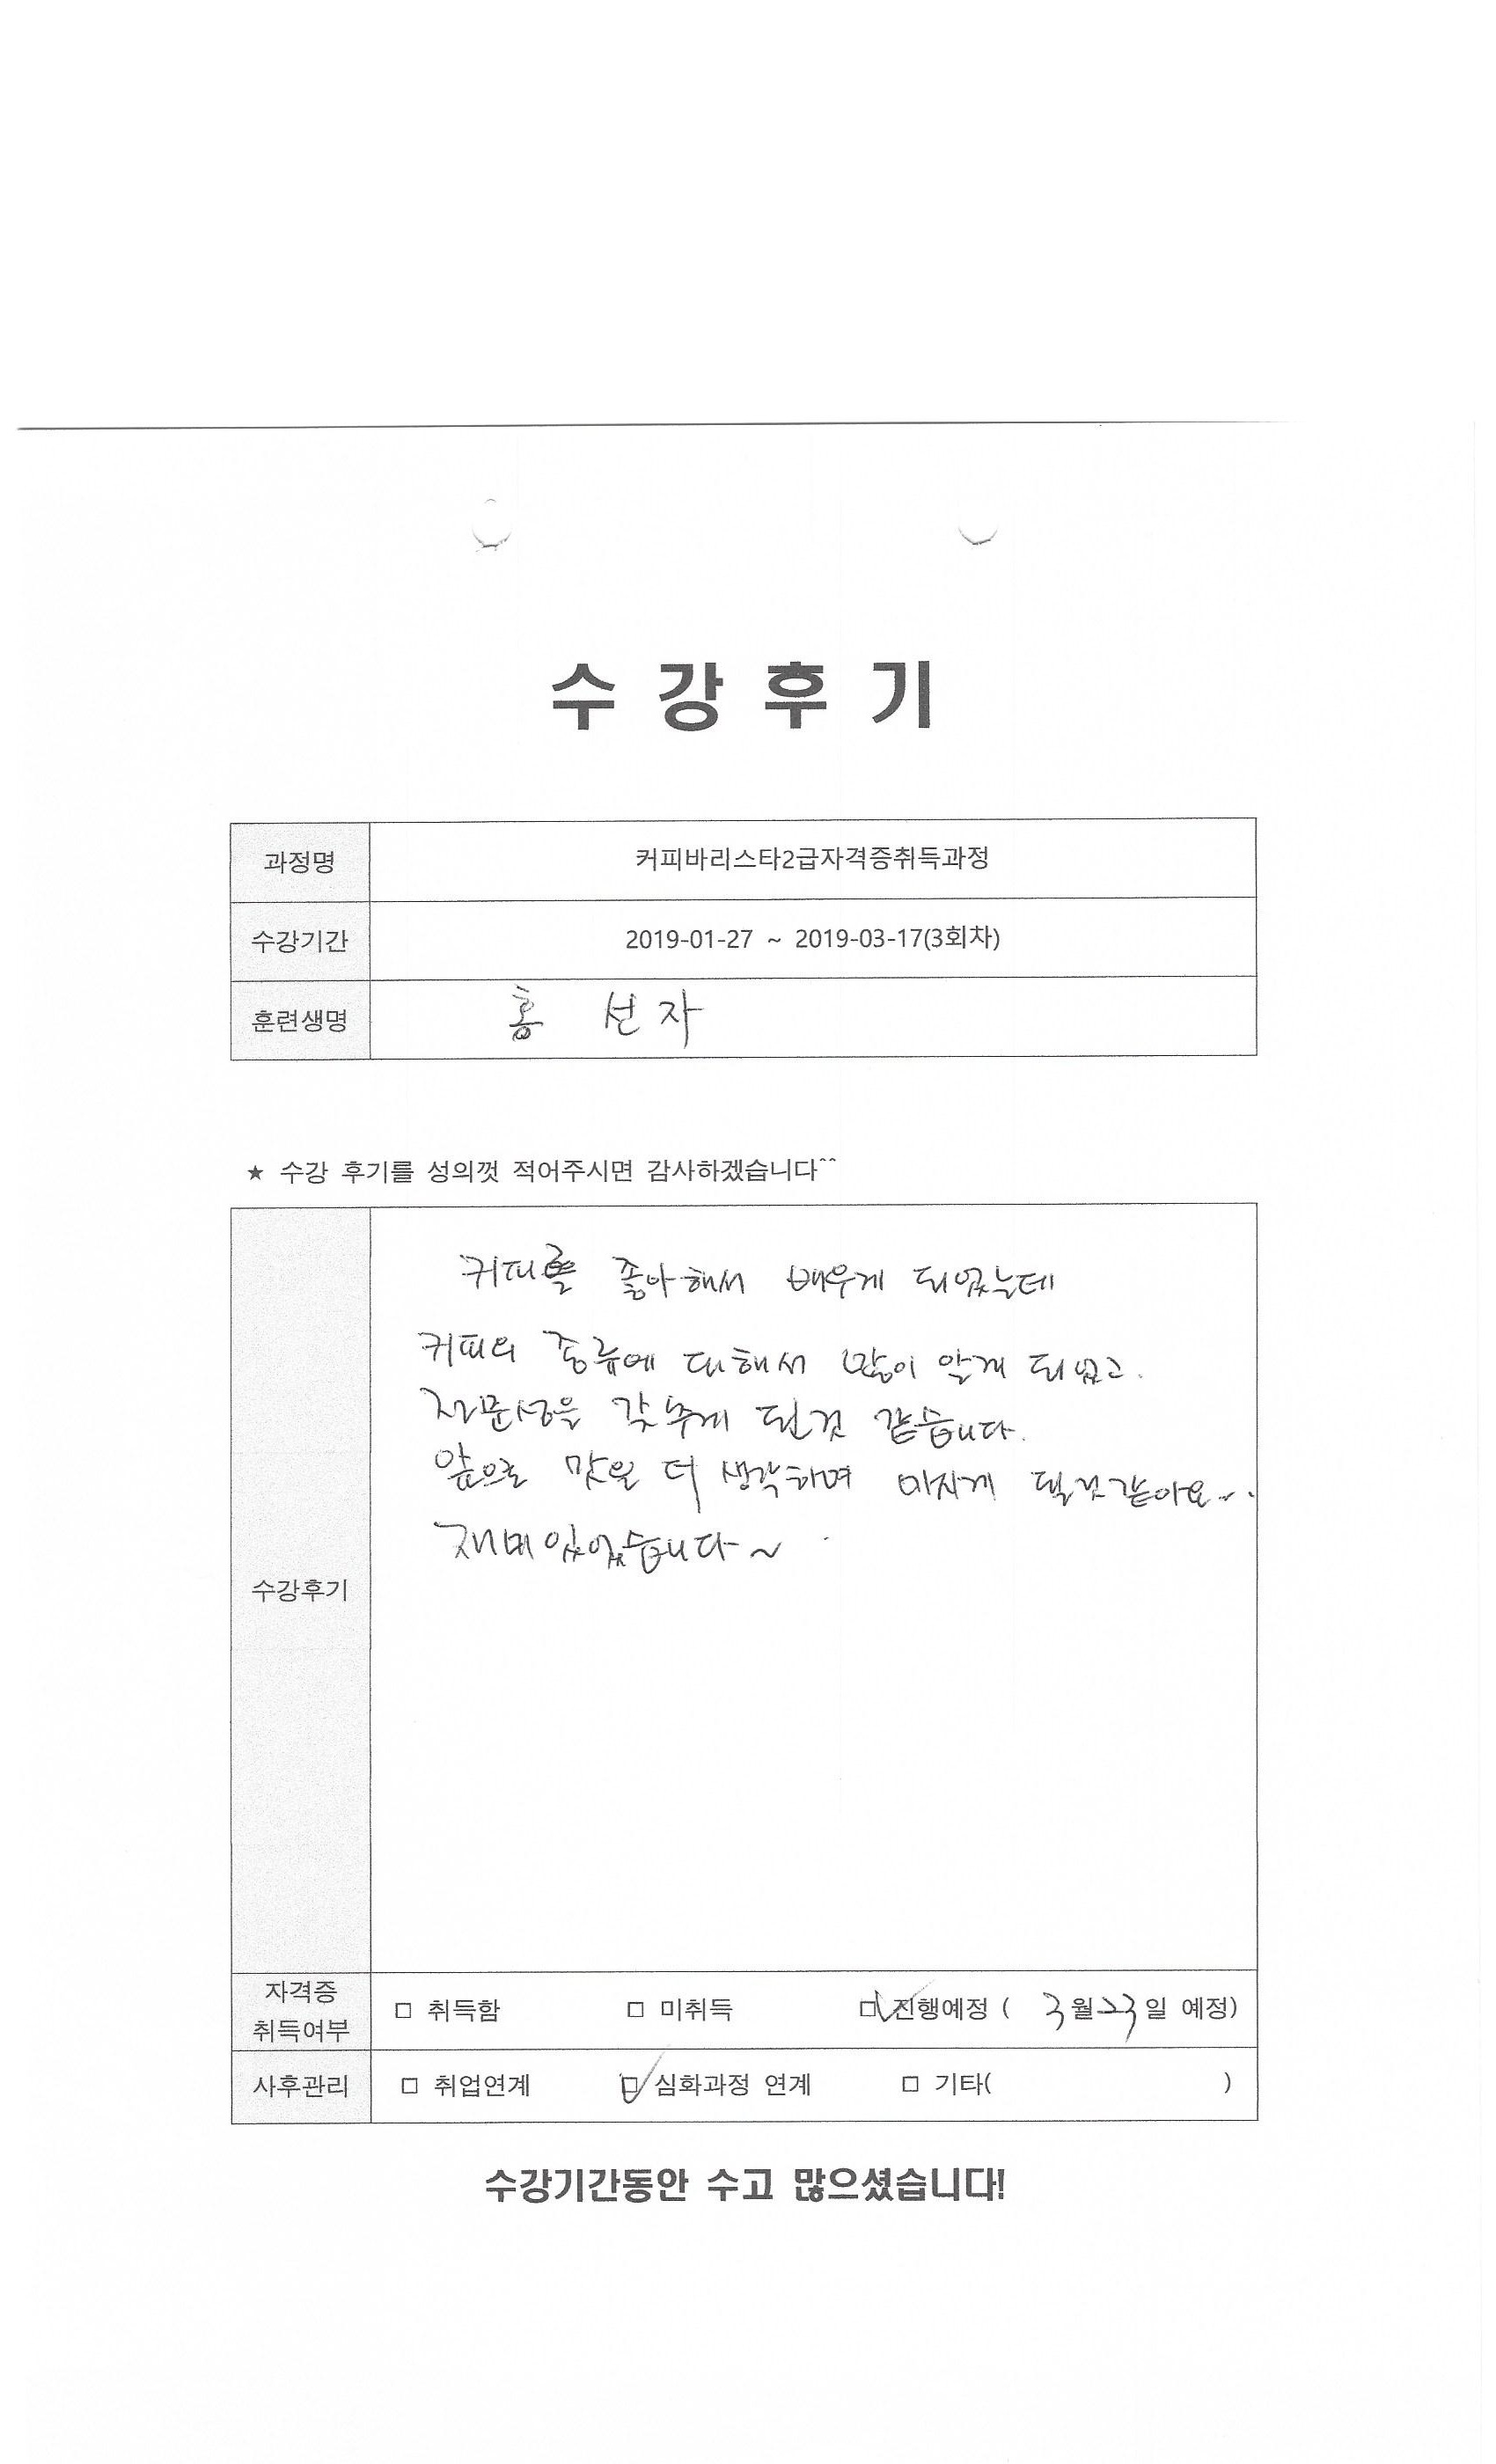 수 강 후 기
과정명 커피바리스타2급자격증취득과정
수강기간 2019-01-27 ~ 2019-03-17(3회차)
훈련생명 홍 선자
★ 수강 후기를 성의껏 적어주시면 감사하겠습니다^^
커피를 좋아해서 배우게 되었는데
커피의 종류에 대해서 많이 알게 되었고.
전문성을 갖추게 된것 같습니다.
앞으로 맛을 더 생각하며 마시게 될것같아요~.
재미있었습니다~
수강후기
자격증
취득여부 □ 취득함 □ 미취득 ☑ 진행예정 ( 3월 23일 예정)
사후관리 □ 취업연계 ☑ 심화과정 연계 □ 기타( )
수강기간동안 수고 많으셨습니다!